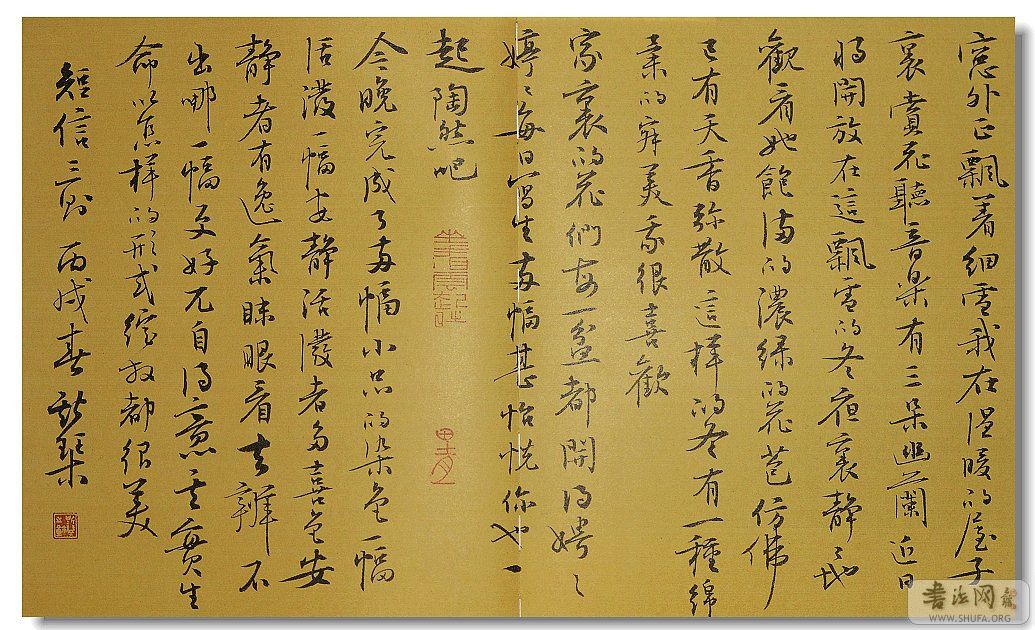 窓外正飄着細雪我在温暖的屋子
裏賞花聽音樂有三朵幽蘭近日
將開放在這飄雪的冬夜裏靜靜地
觀看她飽滿的濃緑的花苞仿佛
已有天香弥散這樣的冬有一種綿
柔的寂美我很喜歡
家裏的花們每一盆都開得娉娉
婷婷每日寫生兩幅甚怡悦你也一
起陶然吧
今晚完成了兩幅小品的染色一幅
活潑一幅安静活潑者多喜色安
静者有逸氣眯眼看去辨不
出哪一幅更好兀自得意其實生
命以怎樣的形式綻放都很美
短信三則 丙戌春
書法网
WWW.SHUFA.ORG